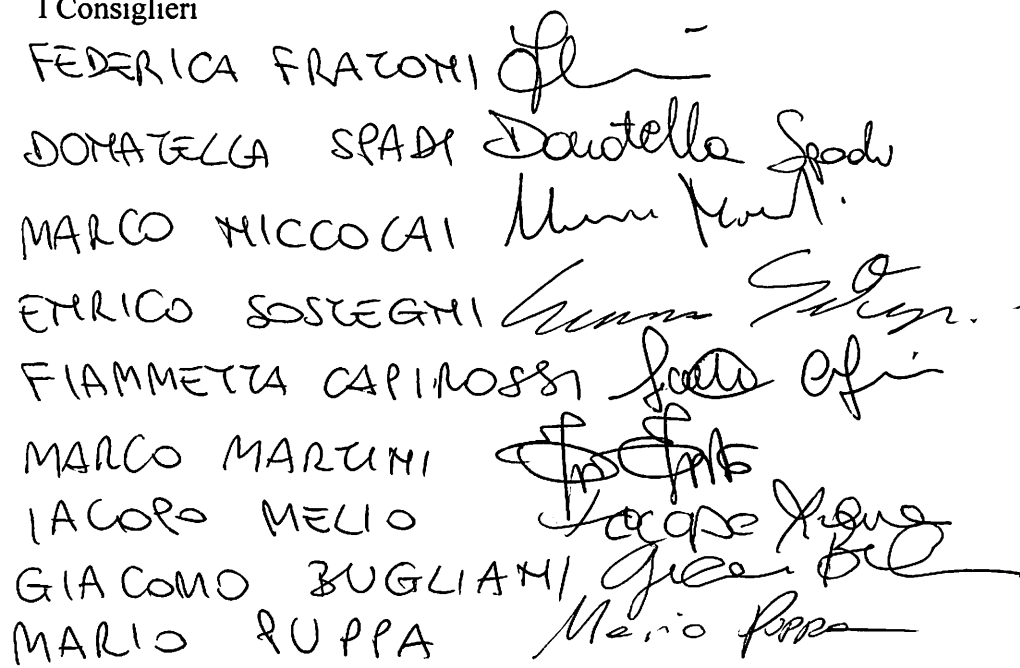 I Consiglieri
FEDERICA FRATONI
DONATELLA SPADI Donatella Spadi
MARCO NICCOLAI
ENRICO SOSTEGNI
FIAMMETTA CAPIROSSI
MARCO MARTINI
IACOPO MELIO Iacopo
GIACOMO BUGLIANI
MARIO PUPPA Mario Puppa